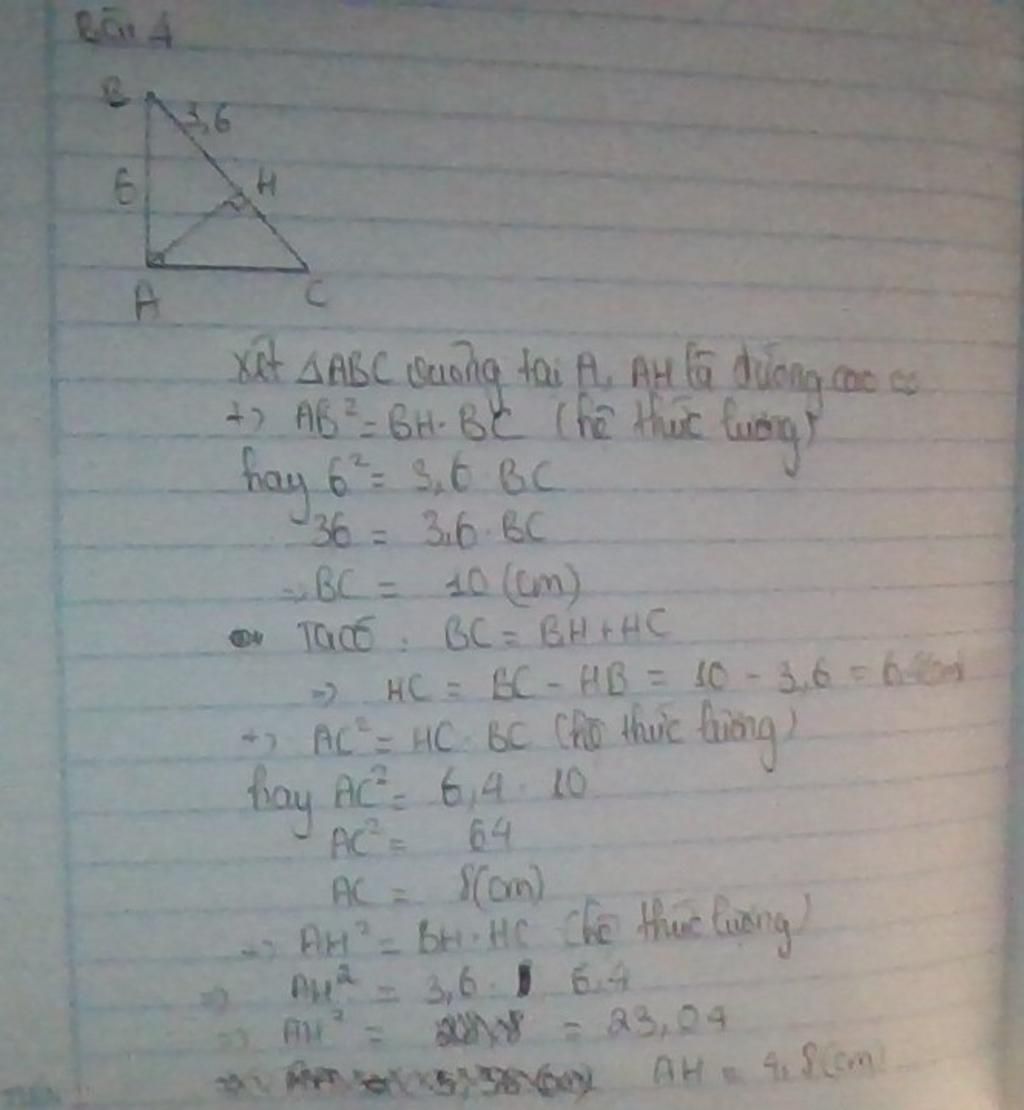 Bài 4
B
3,6
6
H
A
C
Xét ΔABC vuông tại A, AH là đường cao có
+) AB² = BH · BC (hệ thức lượng)
hay 6² = 3,6 · BC
36 = 3,6 · BC
⇒ BC = 10 (cm)
Ta có : BC = BH + HC
=) HC = BC - HB = 10 - 3,6 = 6,4(cm)
+) AC² = HC · BC (hệ thức lượng)
hay AC² = 6,4 · 10
AC² = 64
AC = 8(cm)
+) AH² = BH · HC (hệ thức lượng)
=) AH² = 3,6 · 6,4
=) AH² = = 23,04
AH = 4,8(cm)